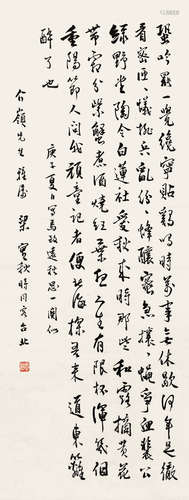 蛩吟罷一覺纔寧貼鷄鳴時萬事無休歇何年是徹
看密匝匝蟻排兵亂紛紛蜂釀蜜急攘攘蠅爭血裴公
綠野堂陶令白蓮社愛秋來時那些和露摘黃花
帶霜分紫蟹煮酒燒紅葉想人生有限杯渾幾個
重陽節人問我頑童記者便北海探吾來道東籬
醉了也
庚子夏日寫馬致遠秋思一闋似
嶺先生雅屬 梁實秋時同客台北